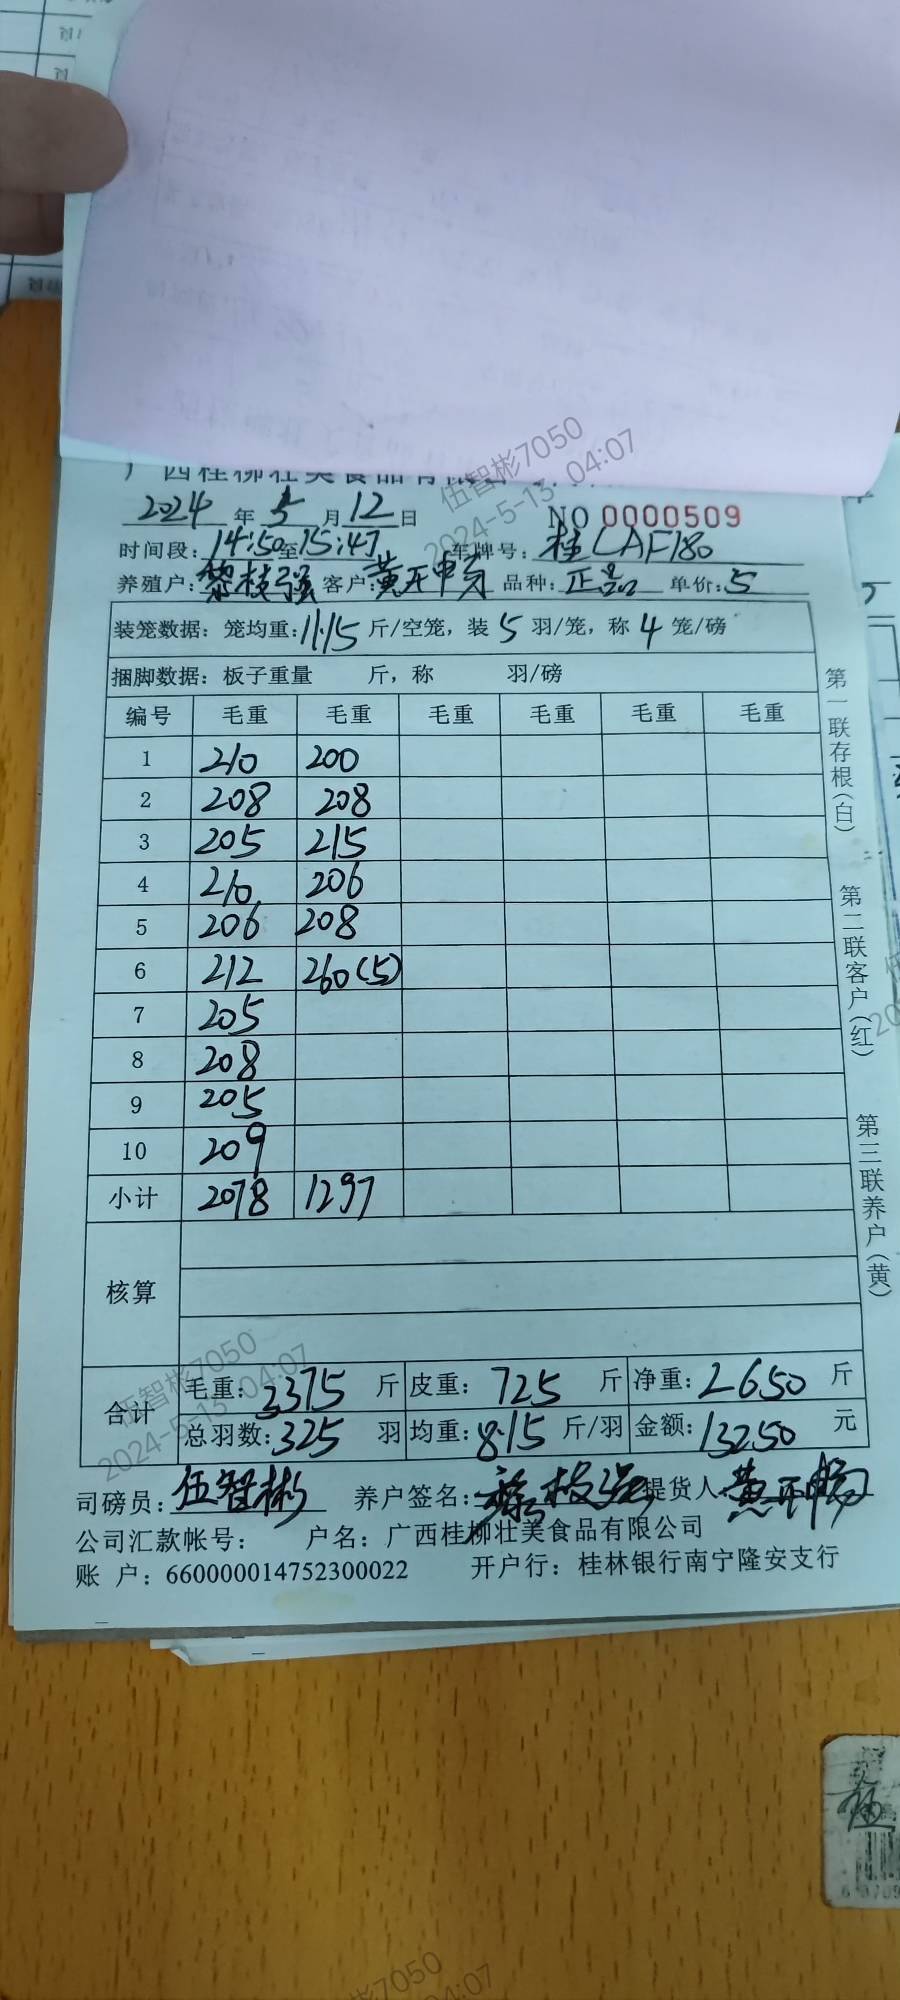 广西桂柳壮美食品有限
2024年5月12日 NO 0000509
时间段:14:50至15:47 车牌号:桂LAF180
养殖户:黎枝强 客户:黄开 品种:正品 单价:5
装笼数据:笼均重:11.15斤/空笼,装5羽/笼,称4笼/磅
捆脚数据:板子重量 斤,称 羽/磅
编号 毛重 毛重 毛重 毛重 毛重 毛重
1 210 200
2 208 208
3 205 215
4 210 206
5 206 208
6 212 260(5)
7 205
8 208
9 205
10 209
小计 2078 1297
核算
合计 毛重:3375斤 皮重:725斤 净重:2650斤
总羽数:325羽 均重:8.15斤/羽 金额:13250元
司磅员:伍智彬 养户签名:黎枝强 提货人:黄开
公司汇款帐号: 户名:广西桂柳壮美食品有限公司
账 户:660000014752300022 开户行:桂林银行南宁隆安支行
第一联存根(白)
第二联客户(红)
第三联养户(黄)
伍智彬7050
2024-5-13 04:07
伍智彬7050
2024-5-13 04:07
伍智彬7050
04:07